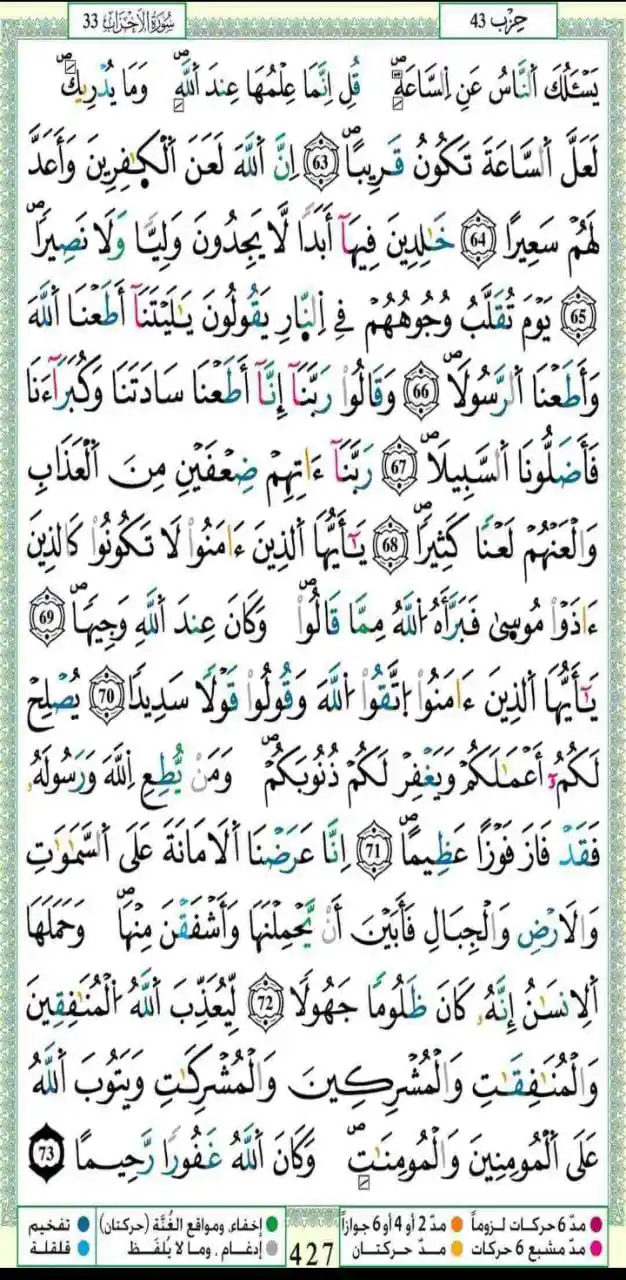 سُورَةُ الأَحْزَابِ 33
حِزْب 43
يَسْـَٔلُكَ اَ۬لنَّاسُ عَنِ اِ۬لسَّاعَةِۖ قُلِ اِنَّمَا عِلْمُهَا عِندَ اَ۬للَّهِۖ وَمَا يُدْرِيكَۖ
لَعَلَّ اَ۬لسَّاعَةَ تَكُونُ قَرِيباًۖ 63 اِنَّ اَ۬للَّهَ لَعَنَ اَ۬لْكٰ۪فِرِينَ وَأَعَدَّ
لَهُمْ سَعِيراً 64 خَٰلِدِينَ فِيهَآ أَبَداٗ لَّا يَجِدُونَ وَلِيّاٗ وَلَا نَصِيراًۖ
65 يَوْمَ تُقَلَّبُ وُجُوهُهُمْ فِے اِ۬لنّ۪ارِ يَقُولُونَ يَٰلَيْتَنَآ أَطَعْنَا اَ۬للَّهَ
وَأَطَعْنَا اَ۬لرَّسُولَاۖ 66 وَقَالُواْ رَبَّنَآ إِنَّآ أَطَعْنَا سَادَتَنَا وَكُبَرَآءَنَا
فَأَضَلُّونَا اَ۬لسَّبِيلَاۖ 67 رَبَّنَآ ءَاتِهِمْ ضِعْفَيْنِ مِنَ اَ۬لْعَذَابِ
وَالْعَنْهُمْ لَعْناٗ كَثِيراًۖ 68 يَٰٓأَيُّهَا اَ۬لذِينَ ءَامَنُواْ لَا تَكُونُواْ كَالذِينَ
ءَاذَوْاْ مُوس۪يٰ فَبَرَّأَهُ اُ۬للَّهُ مِمَّا قَالُواْۖ وَكَانَ عِندَ اَ۬للَّهِ وَجِيهاًۖ 69
يَٰٓأَيُّهَا اَ۬لذِينَ ءَامَنُواْ اُ۪تَّقُواْ اُ۬للَّهَ وَقُولُواْ قَوْلاٗ سَدِيداٗ 70 يُصْلِحْ
لَكُمُۥٓ أَعْمَٰلَكُمْ وَيَغْفِرْ لَكُمْ ذُنُوبَكُمْۖ وَمَنْ يُّطِعِ اِ۬للَّهَ وَرَسُولَهُۥ
فَقَدْ فَازَ فَوْزاً عَظِيماًۖ 71 اِنَّا عَرَضْنَا اَ۬لَامَانَةَ عَلَي اَ۬لسَّمَٰوَٰتِ
وَالَارْضِ وَالْجِبَالِ فَأَبَيْنَ أَنْ يَّحْمِلْنَهَا وَأَشْفَقْنَ مِنْهَاۖ وَحَمَلَهَا
اَ۬لِانسَٰنُ إِنَّهُۥ كَانَ ظَلُوماٗ جَهُولاٗ 72 لِّيُعَذِّبَ اَ۬للَّهُ اُ۬لْمُنَٰفِقِينَ
وَالْمُنَٰفِقَٰتِ وَالْمُشْرِكِينَ وَالْمُشْرِكَٰتِ وَيَتُوبَ اَ۬للَّهُ
عَلَي اَ۬لْمُومِنِينَ وَالْمُومِنَٰتِۖ وَكَانَ اَ۬للَّهُ غَفُوراٗ رَّحِيماٗ 73
مدّ 6 حركات لزوماً مدّ 2 أو 4 أو 6 جوازاً إخفاء، ومواقع الغُنَّة (حركتان) تفخيم
مدّ مشبع 6 حركات مدّ حركتان إدغام، وما لا يُلفَظ قلقلة
427